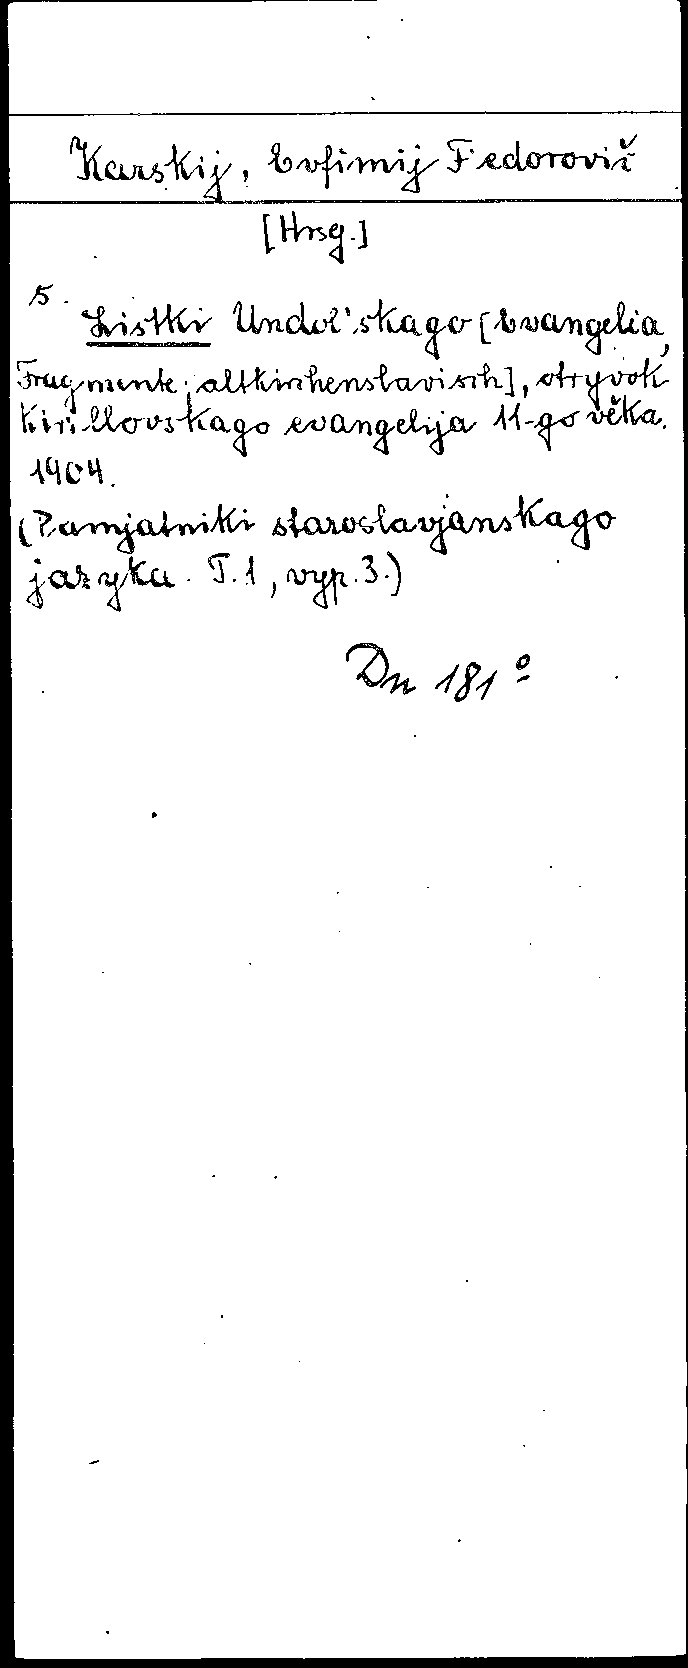 Karskij, Evfimij Fedorovič
[Hrsg.]
5.
Listki Undol'skago [Evangelia,
Fragmente; altkirchenslavisch], otryvok
kirillovskago evangelija 11-go věka.
1904.
(Pamjatniki staroslavjanskago
jazyka. T.1, vyp.3.)
Dn 181º